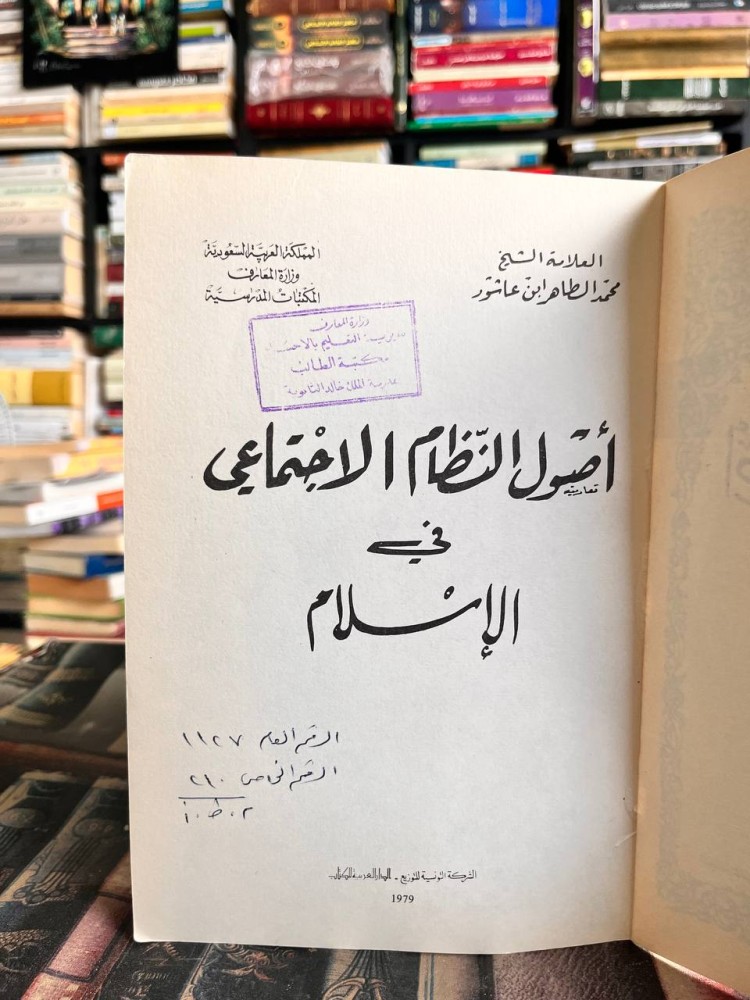 العلامة الشيخ
محمد الطاهر ابن عاشور
المملكة العربية السعودية
وزارة المعارف
المكتبات المدرسية
وزارة المعارف
التعليم بالاحساء
مكتبة الطالب
بمدرسة الملك خالد الثانوية
أصول النظام الاجتماعي
في
الإسلام
الرقم العام ١١٢٧
الرقم الخاص ٢١٠
م . ط . أ
الشركة التونسية للتوزيع - الدار العربية للكتاب
1979